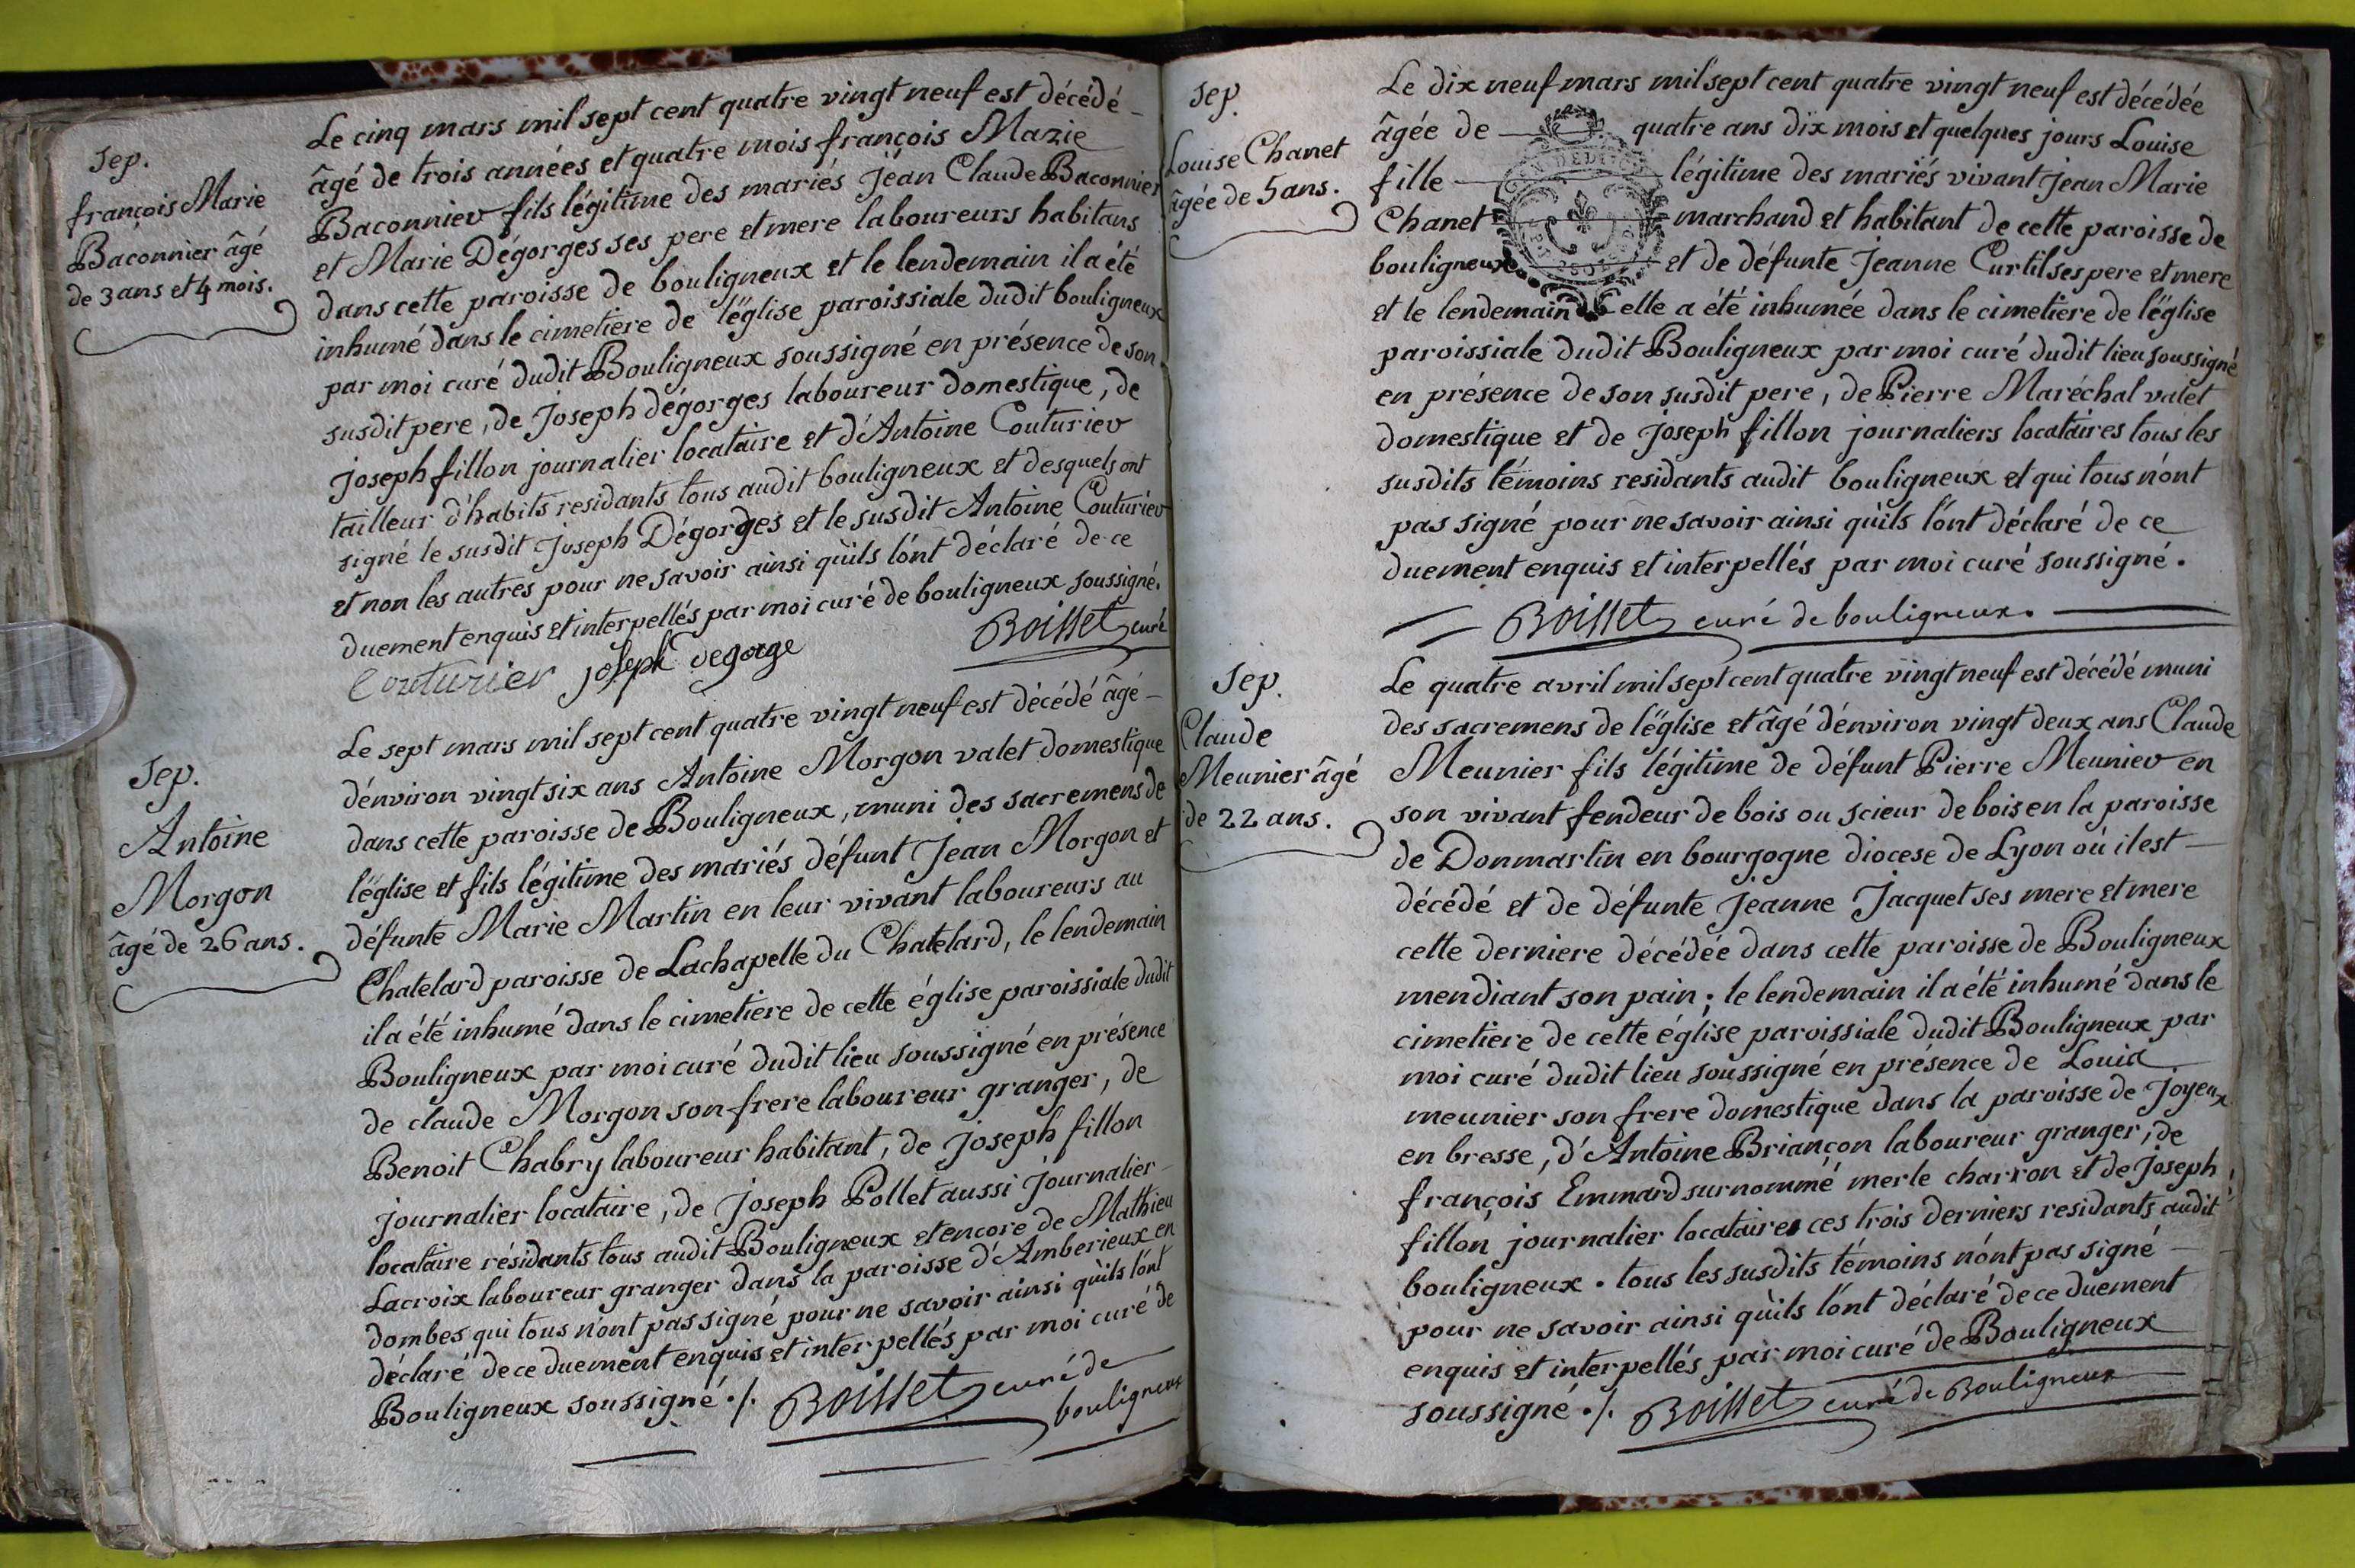 Sep.
françois Marie
Baconnier âgé
de 3 ans et 4 mois.
Le cinq mars mil sept cent quatre vingt neuf est décédé
âgé de trois années et quatre mois françois Marie
Baconnier fils légitime des mariés jéan Claude Baconnier
et Marie Dégorges ses pere et mere laboureurs habitans
dans cette paroisse de bouligneux et le lendemain il a été
inhumé dans le cimetiere de l'église paroissiale dudit bouligneux
par moi curé dudit Bouligneux soussigné en présence de son
susdit pere, de Joseph dégorges laboureur domestique, de
joseph fillon journalier locataire et d'Antoine Couturier
tailleur d'habits residants tous audit bouligneux et desquels ont
signé le susdit Joseph Dégorges et le susdit Antoine Couturier
et non les autres pour ne savoir ainsi qu'ils l'ont déclaré de ce
duement enquis et interpellés par moi curé de bouligneux soussigné.
Couturier joseph degorge Boisset curé
Sep.
Antoine
Morgon
âgé de 26 ans.
Le sept mars mil sept cent quatre vingt neuf est décédé âgé
d'environ vingt six ans Antoine Morgon valet domestique
dans cette paroisse de Bouligneux, muni des sacremens de
l'église et fils légitime des mariés défunt Jean Morgon et
défunte Marie Martin en leur vivant laboureurs au
Chatelard paroisse de Lachapelle du Chatelard, le lendemain
il a été inhumé dans le cimetiere de cette église paroissiale dudit
Bouligneux par moi curé dudit lieu soussigné en présence
de claude Morgon son frere laboureur granger, de
Benoit Chabry laboureur habitant, de joseph fillon
journalier locataire, de joseph Pollet aussi journalier
locataire résidants tous audit Bouligneux et encore de Mathieu
Lacroix laboureur granger dans la paroisse d'Amberieux en
dombes qui tous n'ont pas signé pour ne savoir ainsi qu'ils l'ont
déclaré de ce duement enquis et interpellés par moi curé de
Bouligneux soussigné ./. Boisset curé de
bouligneux
Sep.
Louise Chanet
âgée de 5 ans.
Le dix neuf mars mil sept cent quatre vingt neuf est décédée
âgée de quatre ans dix mois et quelques jours Louise
fille légitime des mariés vivant jean Marie
Chanet marchand et habitant de cette paroisse de
bouligneux et de défunte Jeanne Curtil ses pere et mere
et le lendemain elle a été inhumée dans le cimetiere de l'église
paroissiale dudit Bouligneux par moi curé dudit lieu soussigné
en présence de son susdit pere, de Pierre Maréchal valet
domestique et de joseph fillon journaliers locataires tous les
susdits témoins residants audit bouligneux et qui tous n'ont
pas signé pour ne savoir ainsi qu'ils l'ont déclaré de ce
duement enquis et interpellés par moi curé soussigné.
Boisset curé de bouligneux.
Sep.
Claude
Meunier âgé
de 22 ans.
Le quatre avril mil sept cent quatre vingt neuf est décédé muni
des sacremens de l'église et âgé d'environ vingt deux ans Claude
Meunier fils légitime de défunt Pierre Meunier en
son vivant fendeur de bois ou scieur de bois en la paroisse
de Donmartin en bourgogne diocese de Lyon où il est
décédé et de défunte Jeanne Jacquet ses mere et mere
cette derniere décédée dans cette paroisse de Bouligneux
mendiant son pain; le lendemain il a été inhumé dans le
cimetiere de cette église paroissiale dudit Bouligneux par
moi curé dudit lieu soussigné en présence de Louis
meunier son frere domestique dans la paroisse de joyeux
en bresse, d'Antoine Briançon laboureur granger, de
françois Emmard surnommé merle charron et de joseph
fillon journalier locataires ces trois derniers residants audit
bouligneux. tous les susdits témoins n'ont pas signé
pour ne savoir ainsi qu'ils l'ont déclaré de ce duement
enquis et interpellés par moi curé de Bouligneux
soussigné ./. Boisset curé de Bouligneux